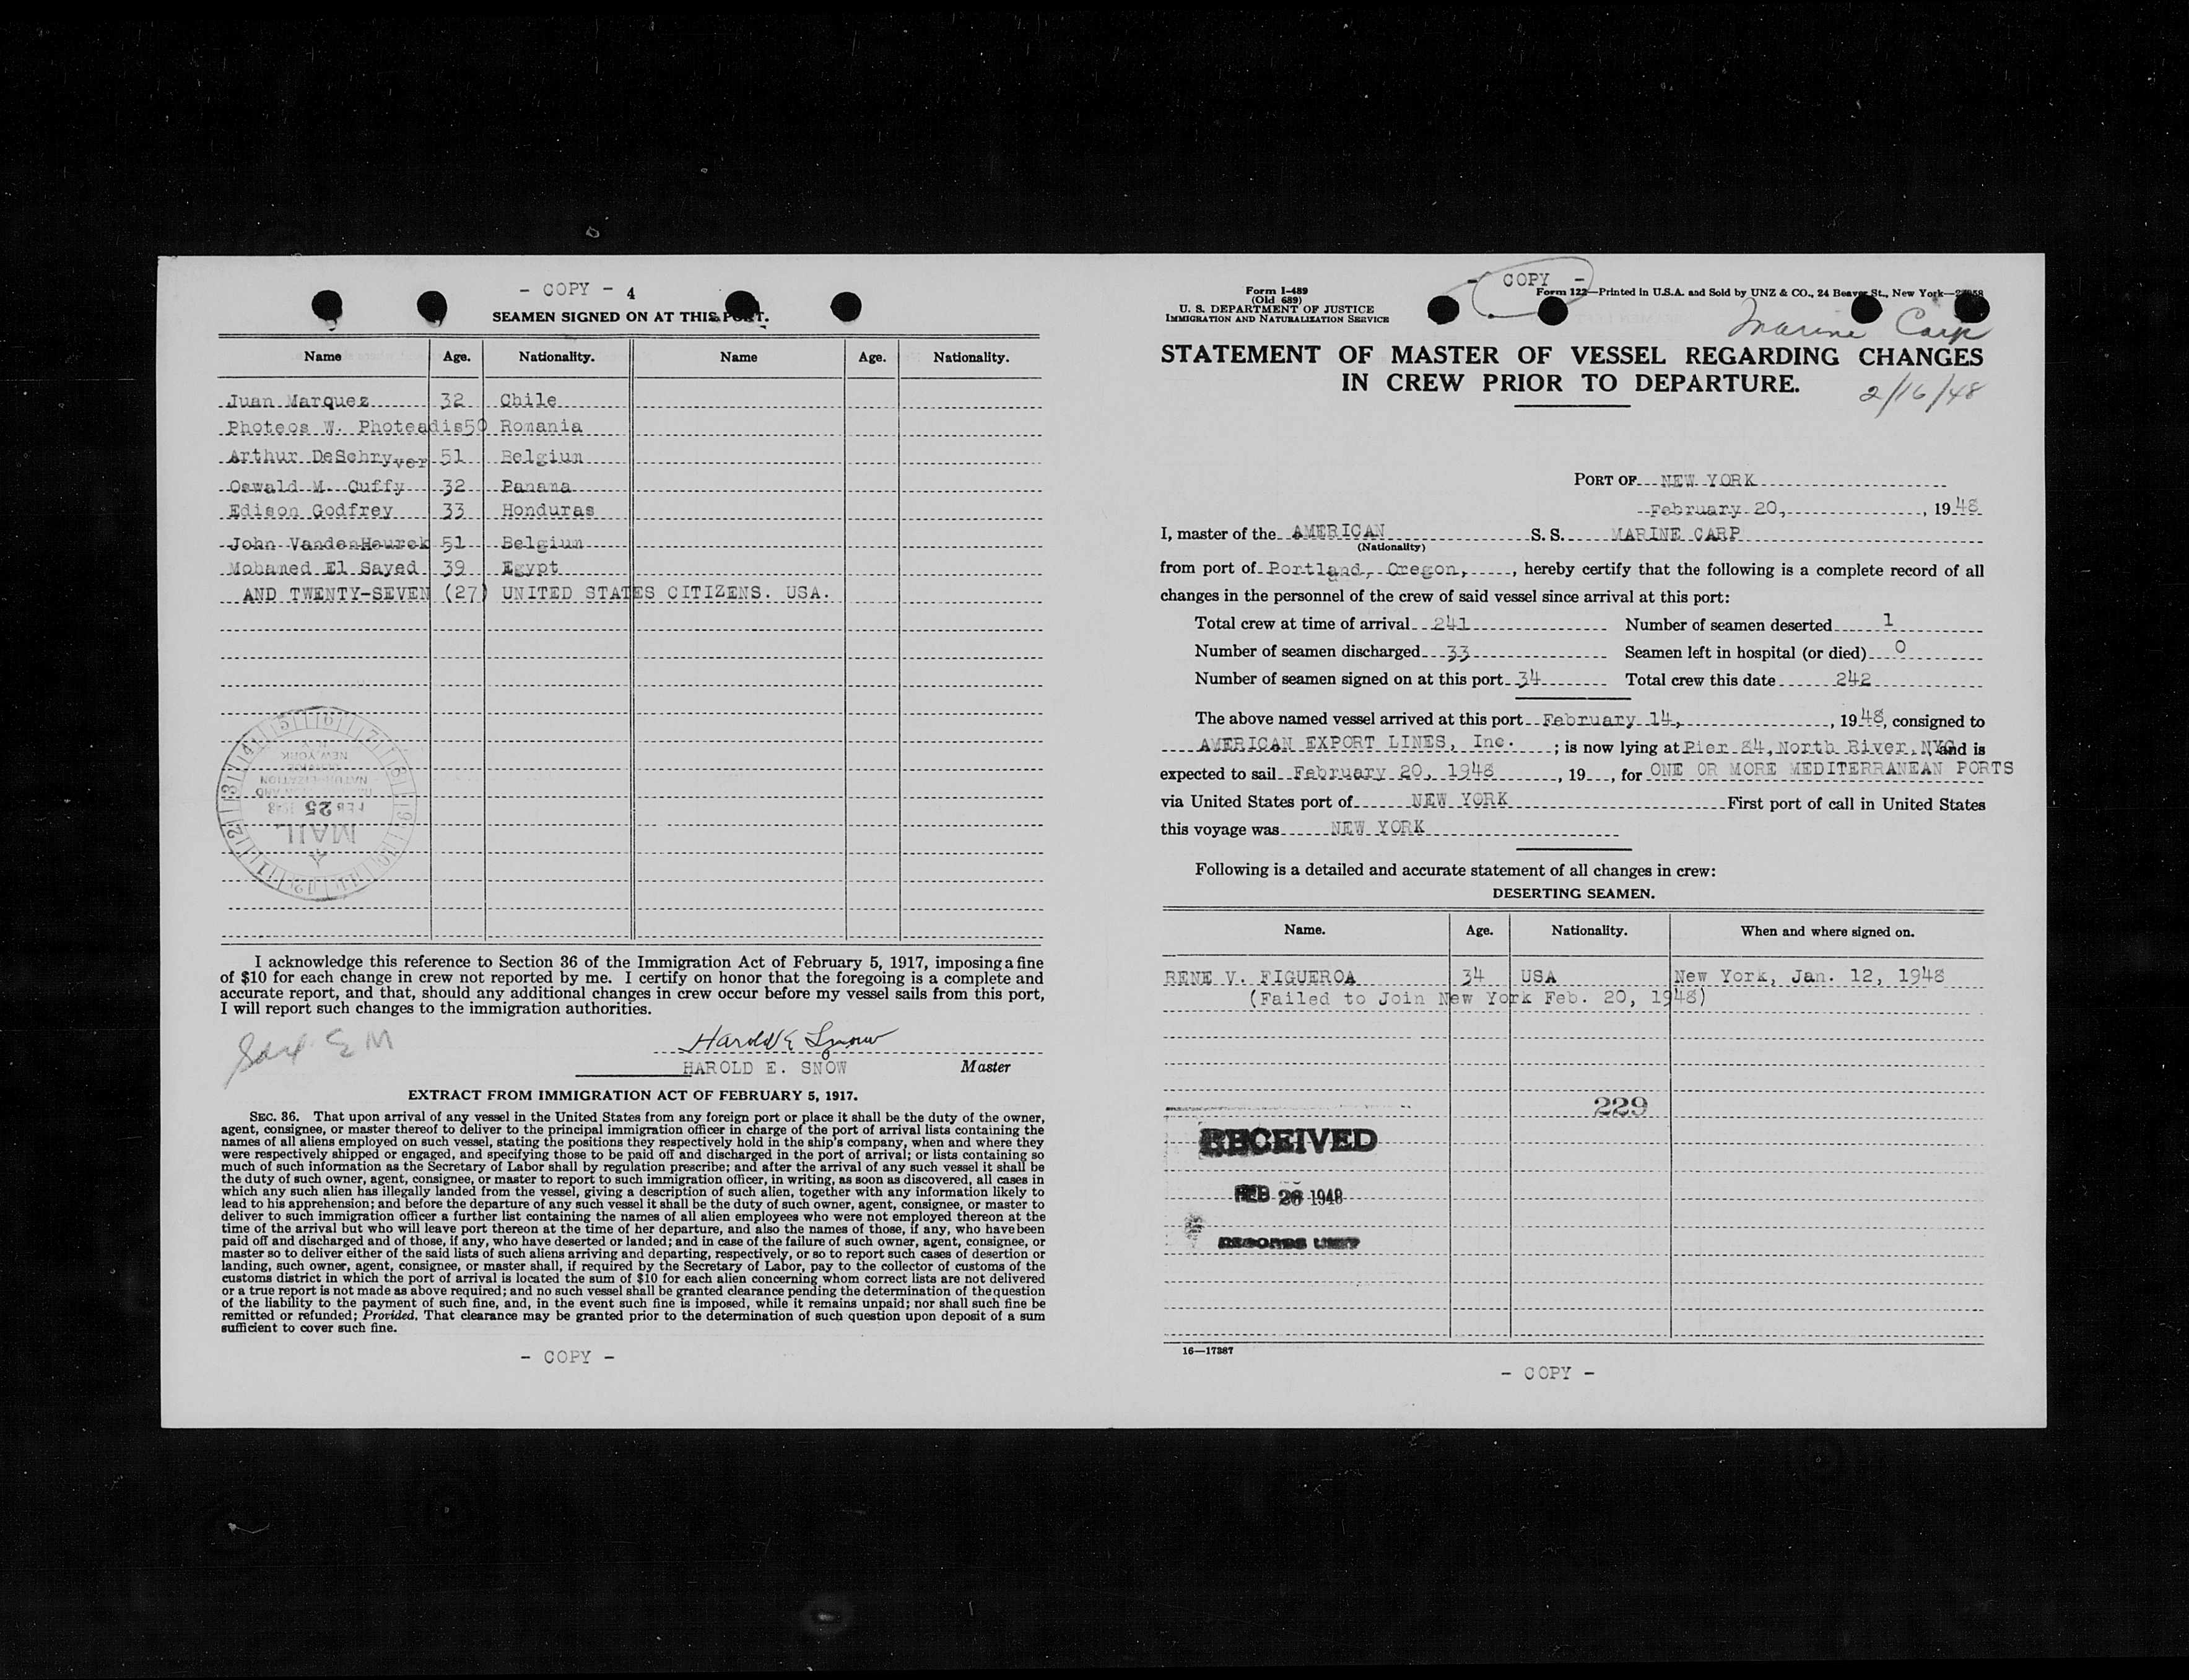 - COPY - 4
SEAMEN SIGNED ON AT THIS PORT.
Name Age. Nationality. Name Age. Nationality.
Juan Marquez 32 Chile
Photeos W. Photeadis 50 Romania
Arthur DeSchryver 51 Belgium
Oswald M. Cuffy 32 Panama
Edison Godfrey 33 Honduras
John VandenHeurck 51 Belgium
Mohamed El Sayed 39 Egypt
AND TWENTY-SEVEN (27) UNITED STATES CITIZENS. USA.
NEW YORK
FEB 25 1948
MAIL
I acknowledge this reference to Section 36 of the Immigration Act of February 5, 1917, imposing a fine
of $10 for each change in crew not reported by me. I certify on honor that the foregoing is a complete and
accurate report, and that, should any additional changes in crew occur before my vessel sails from this port,
I will report such changes to the immigration authorities.
Harold E Snow
HAROLD E. SNOW Master
EXTRACT FROM IMMIGRATION ACT OF FEBRUARY 5, 1917.
SEC. 36. That upon arrival of any vessel in the United States from any foreign port or place it shall be the duty of the owner,
agent, consignee, or master thereof to deliver to the principal immigration officer in charge of the port of arrival lists containing the
names of all aliens employed on such vessel, stating the positions they respectively hold in the ship's company, when and where they
were respectively shipped or engaged, and specifying those to be paid off and discharged in the port of arrival; or lists containing so
much of such information as the Secretary of Labor shall by regulation prescribe; and after the arrival of any such vessel it shall be
the duty of such owner, agent, consignee, or master to report to such immigration officer, in writing, as soon as discovered, all cases in
which any such alien has illegally landed from the vessel, giving a description of such alien, together with any information likely to
lead to his apprehension; and before the departure of any such vessel it shall be the duty of such owner, agent, consignee, or master to
deliver to such immigration officer a further list containing the names of all alien employees who were not employed thereon at the
time of the arrival but who will leave port thereon at the time of her departure, and also the names of those, if any, who have been
paid off and discharged and of those, if any, who have deserted or landed; and in case of the failure of such owner, agent, consignee, or
master so to deliver either of the said lists of such aliens arriving and departing, respectively, or so to report such cases of desertion or
landing, such owner, agent, consignee, or master shall, if required by the Secretary of Labor, pay to the collector of customs of the
customs district in which the port of arrival is located the sum of $10 for each alien concerning whom correct lists are not delivered
or a true report is not made as above required; and no such vessel shall be granted clearance pending the determination of the question
of the liability to the payment of such fine, and, in the event such fine is imposed, while it remains unpaid; nor shall such fine be
remitted or refunded; Provided, That clearance may be granted prior to the determination of such question upon deposit of a sum
sufficient to cover such fine.
- COPY -
- COPY -
Form I-489
(Old 689)
U. S. DEPARTMENT OF JUSTICE
IMMIGRATION AND NATURALIZATION SERVICE
Form 122—Printed in U.S.A. and Sold by UNZ & CO., 24 Beaver St., New York
Marine Carp
STATEMENT OF MASTER OF VESSEL REGARDING CHANGES
IN CREW PRIOR TO DEPARTURE.
2/16/48
PORT OF NEW YORK
February 20, , 1948
I, master of the AMERICAN S. S. MARINE CARP
(Nationality)
from port of Portland, Oregon, , hereby certify that the following is a complete record of all
changes in the personnel of the crew of said vessel since arrival at this port:
Total crew at time of arrival 241 Number of seamen deserted 1
Number of seamen discharged 33 Seamen left in hospital (or died) 0
Number of seamen signed on at this port 34 Total crew this date 242
The above named vessel arrived at this port February 14, , 1948, consigned to
AMERICAN EXPORT LINES, Inc. ; is now lying at Pier 84, North River, NYC and is
expected to sail February 20, 1948 , 19 , for ONE OR MORE MEDITERRANEAN PORTS
via United States port of NEW YORK First port of call in United States
this voyage was NEW YORK
Following is a detailed and accurate statement of all changes in crew:
DESERTING SEAMEN.
Name. Age. Nationality. When and where signed on.
RENE V. FIGUEROA 34 USA New York, Jan. 12, 1948
(Failed to Join New York Feb. 20, 1948)
229
RECEIVED
FEB 26 1948
RECORDS UNIT
16—17387
- COPY -